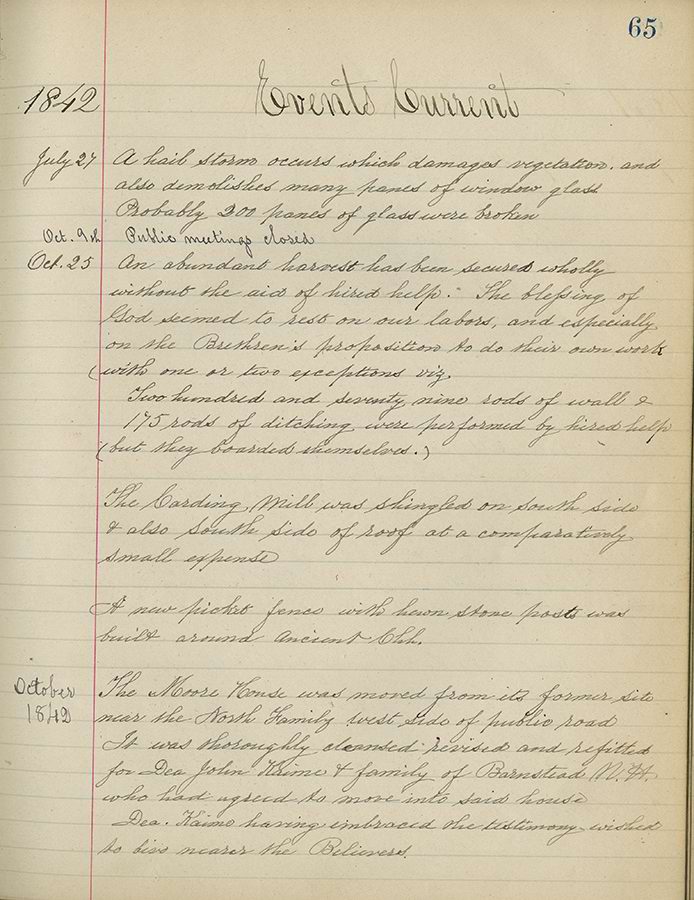 65
1842 Events Current
July 27 A hail storm occurs which damages vegetation. and
also demolishes many panes of window glass
Probably 200 panes of glass were broken
Oct. 9th Public meetings closed
Oct. 25 An abundant harvest has been secured wholly
without the aid of hired help. The blessing of
God seemed to rest on our labors, and especially
on the Brethren's proposition to do their own work
(with one or two exceptions viz.
Two hundred and seventy nine rods of wall &
175 rods of ditching were performed by hired help
(but they boarded themselves.)
The Carding Mill was shingled on south side
& also south side of roof at a comparatively
small expense
A new picket fence with hewn stone posts was
built around ancient Chh.
October The Moore House was moved from its former site
1842 near the North Family west side of public road
It was thoroughly cleansed revised and refitted
for Dea John Kaime & family of Barnstead N. H.
who had agreed to move into said house
Dea. Kaime having embraced the testimony wished
to live nearer the Believers.